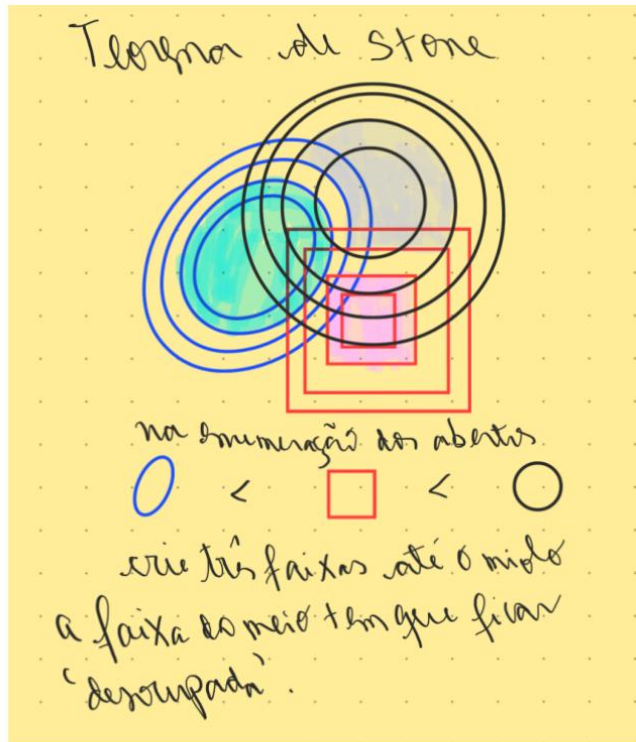 Teorema de Stone
na enumeração dos abertos
< <
crie três faixas até o miolo
a faixa do meio tem que ficar
'desocupada'.